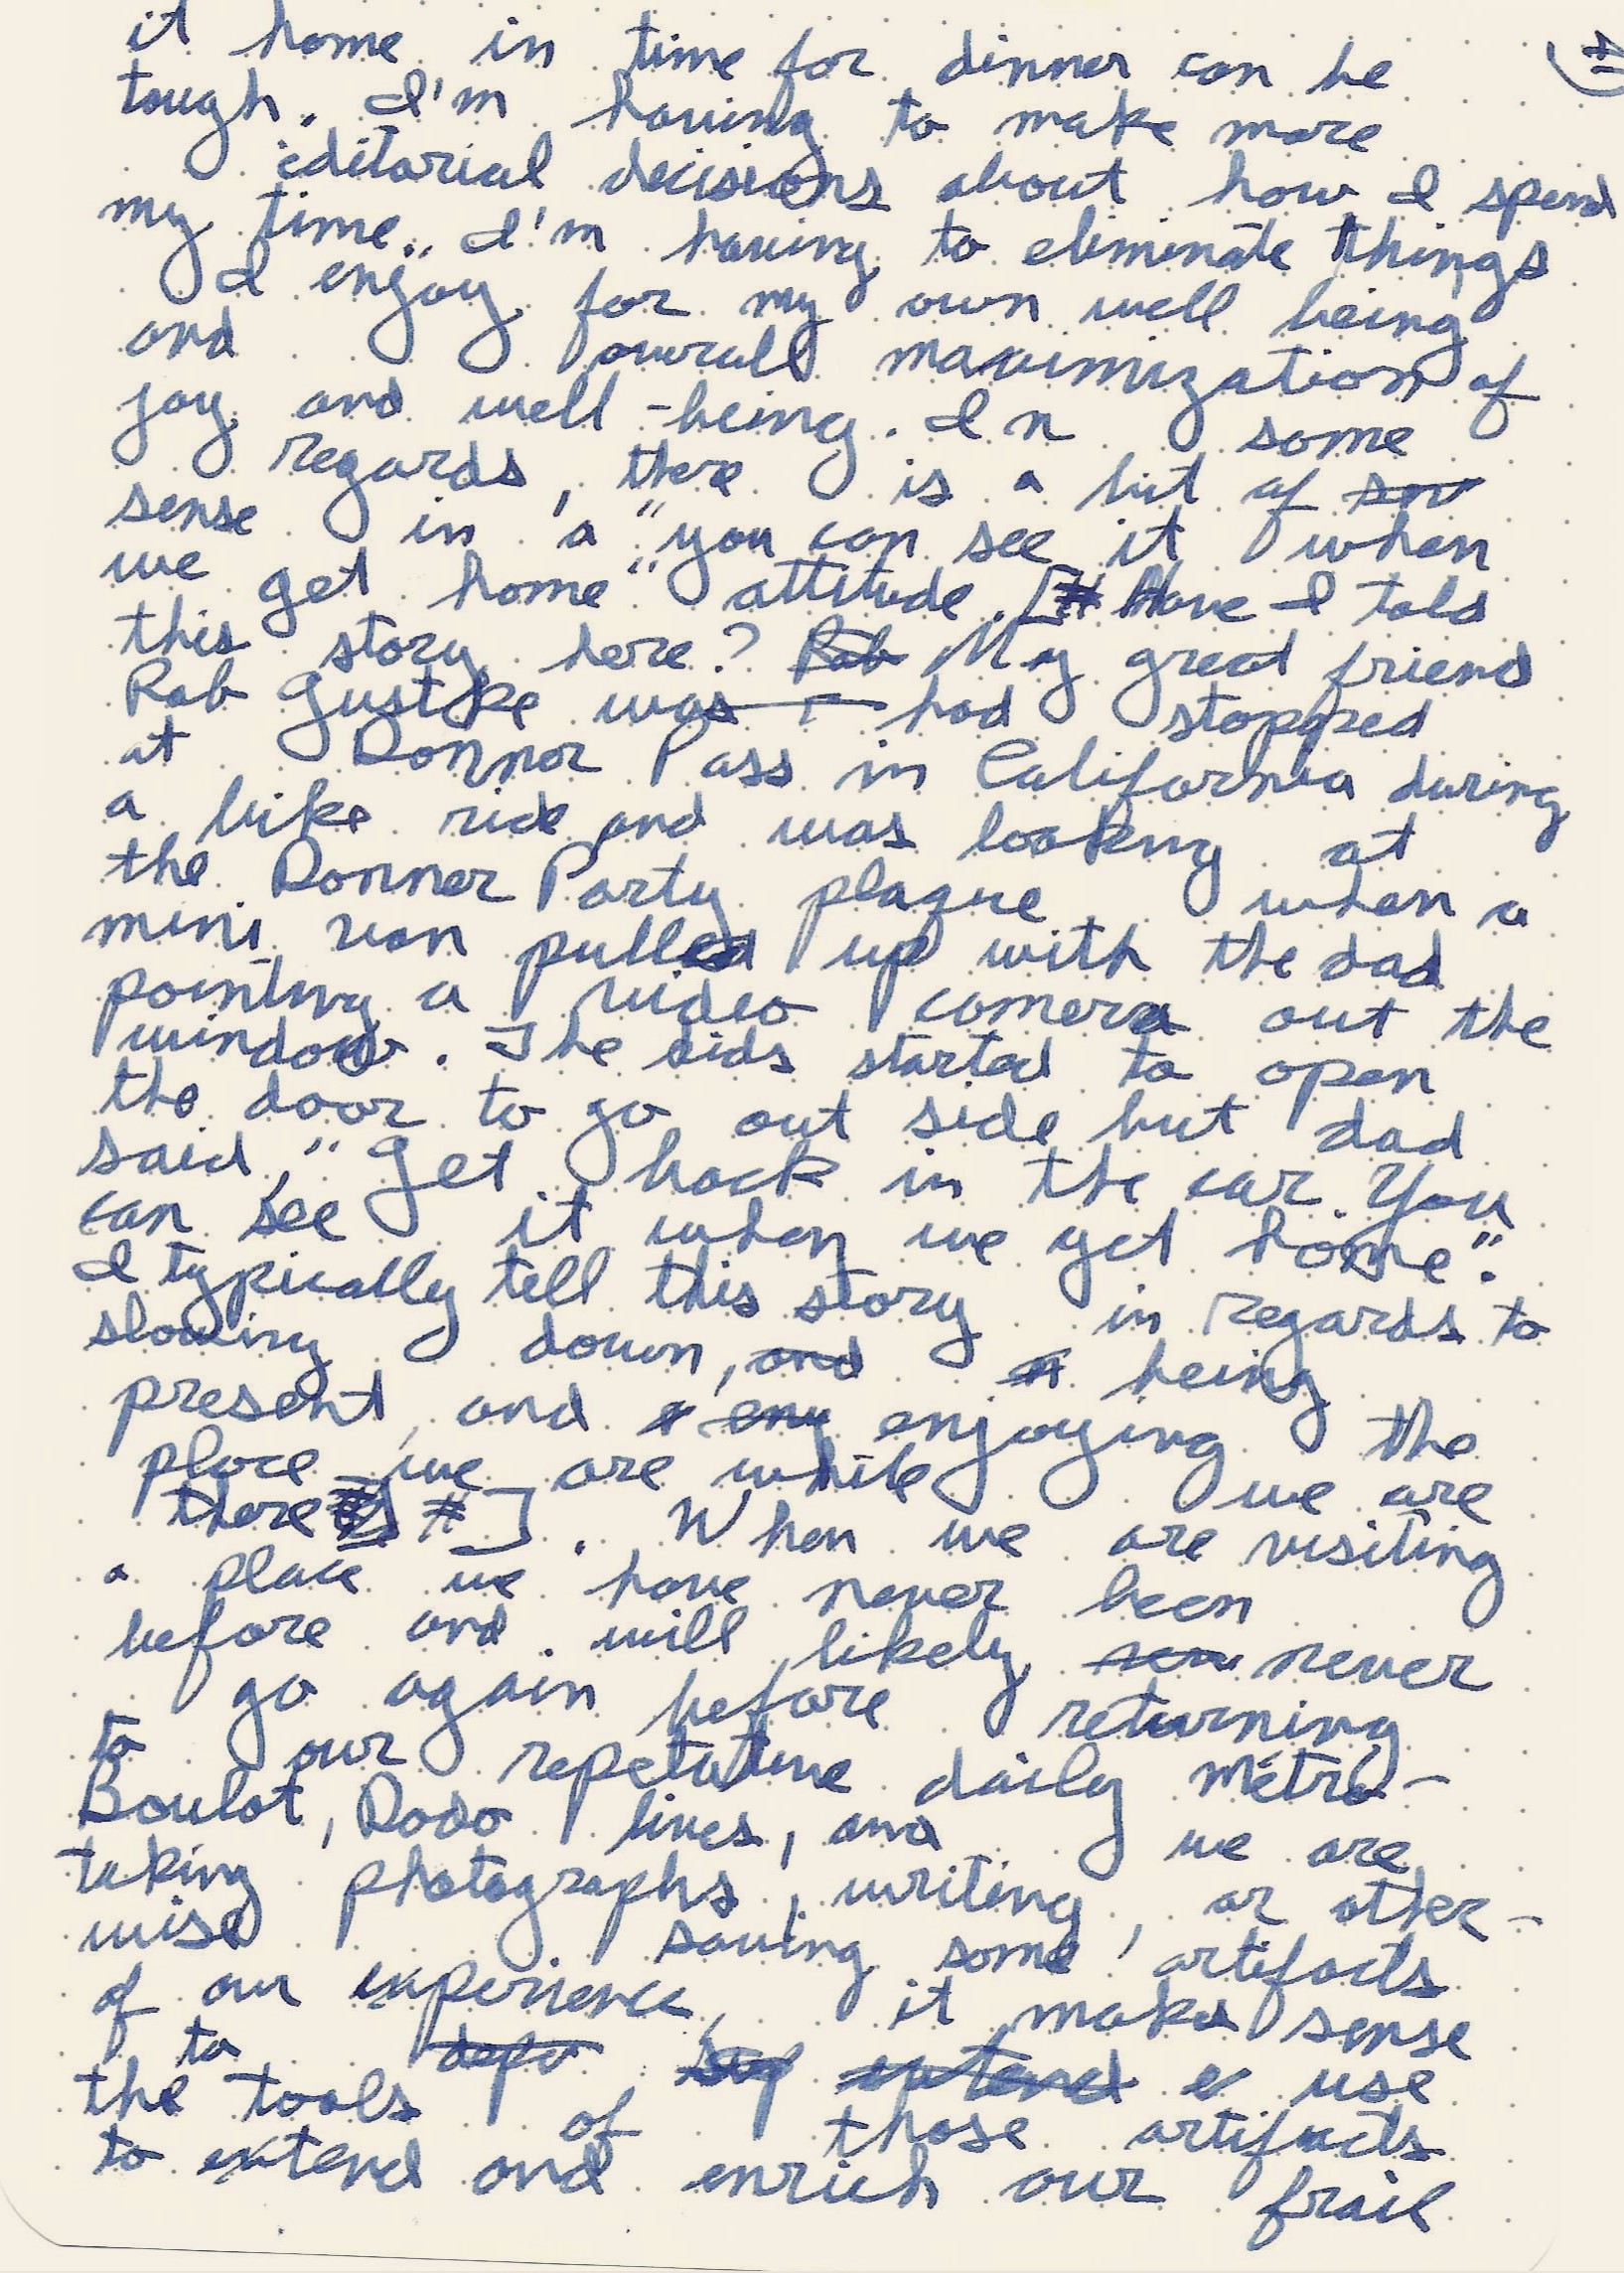 it home in time for dinner can be
tough. I'm having to make more
editorial decisions about how I spend
my time. I'm having to eliminate things
I enjoy for my own well being
and overall maximization of
joy and well-being. In some
regards, there is a bit of sen
sense in a "you can see it when
we get home" attitude. [# Have I told
this story here? Rob My great friend
Rob Gustke was r had stopped
at Donner Pass in California during
a bike ride and was looking at
the Donner Party plaque when a
mini van pulled up with the dad
pointing a video camera out the
window. The kids started to open
the door to go out side but dad
said, "Get back in the car. You
can see it when we get home".
I typically tell this story in regards to
slowing down, and a being
present, and enj enjoying the
place we are while we are
there # ]. When we are visiting
a place we have never been
before and will likely nev never
go again before returning
to our repetative daily Métro-
Boulot, Dodo lives, and we are
taking photographs, writing, or other-
wise saving some artifacts
of our experience, it makes sense
to use
the tools of those artifacts
to extend and enrich our frail